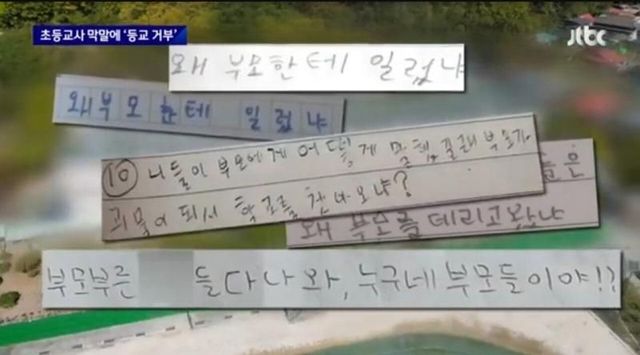 초등교사 막말에 '등교 거부'
jtbc
왜 부모한테 일렀냐
왜 부모한테 일렀냐
⑩ 니들이 부모에게 어떻게 말했길래 부모가
괴물이 되서 학교를 찾아오냐?
들은
왜 부모를 데리고 왔냐
부모부른 들 다 나와, 누구네 부모들이야!?